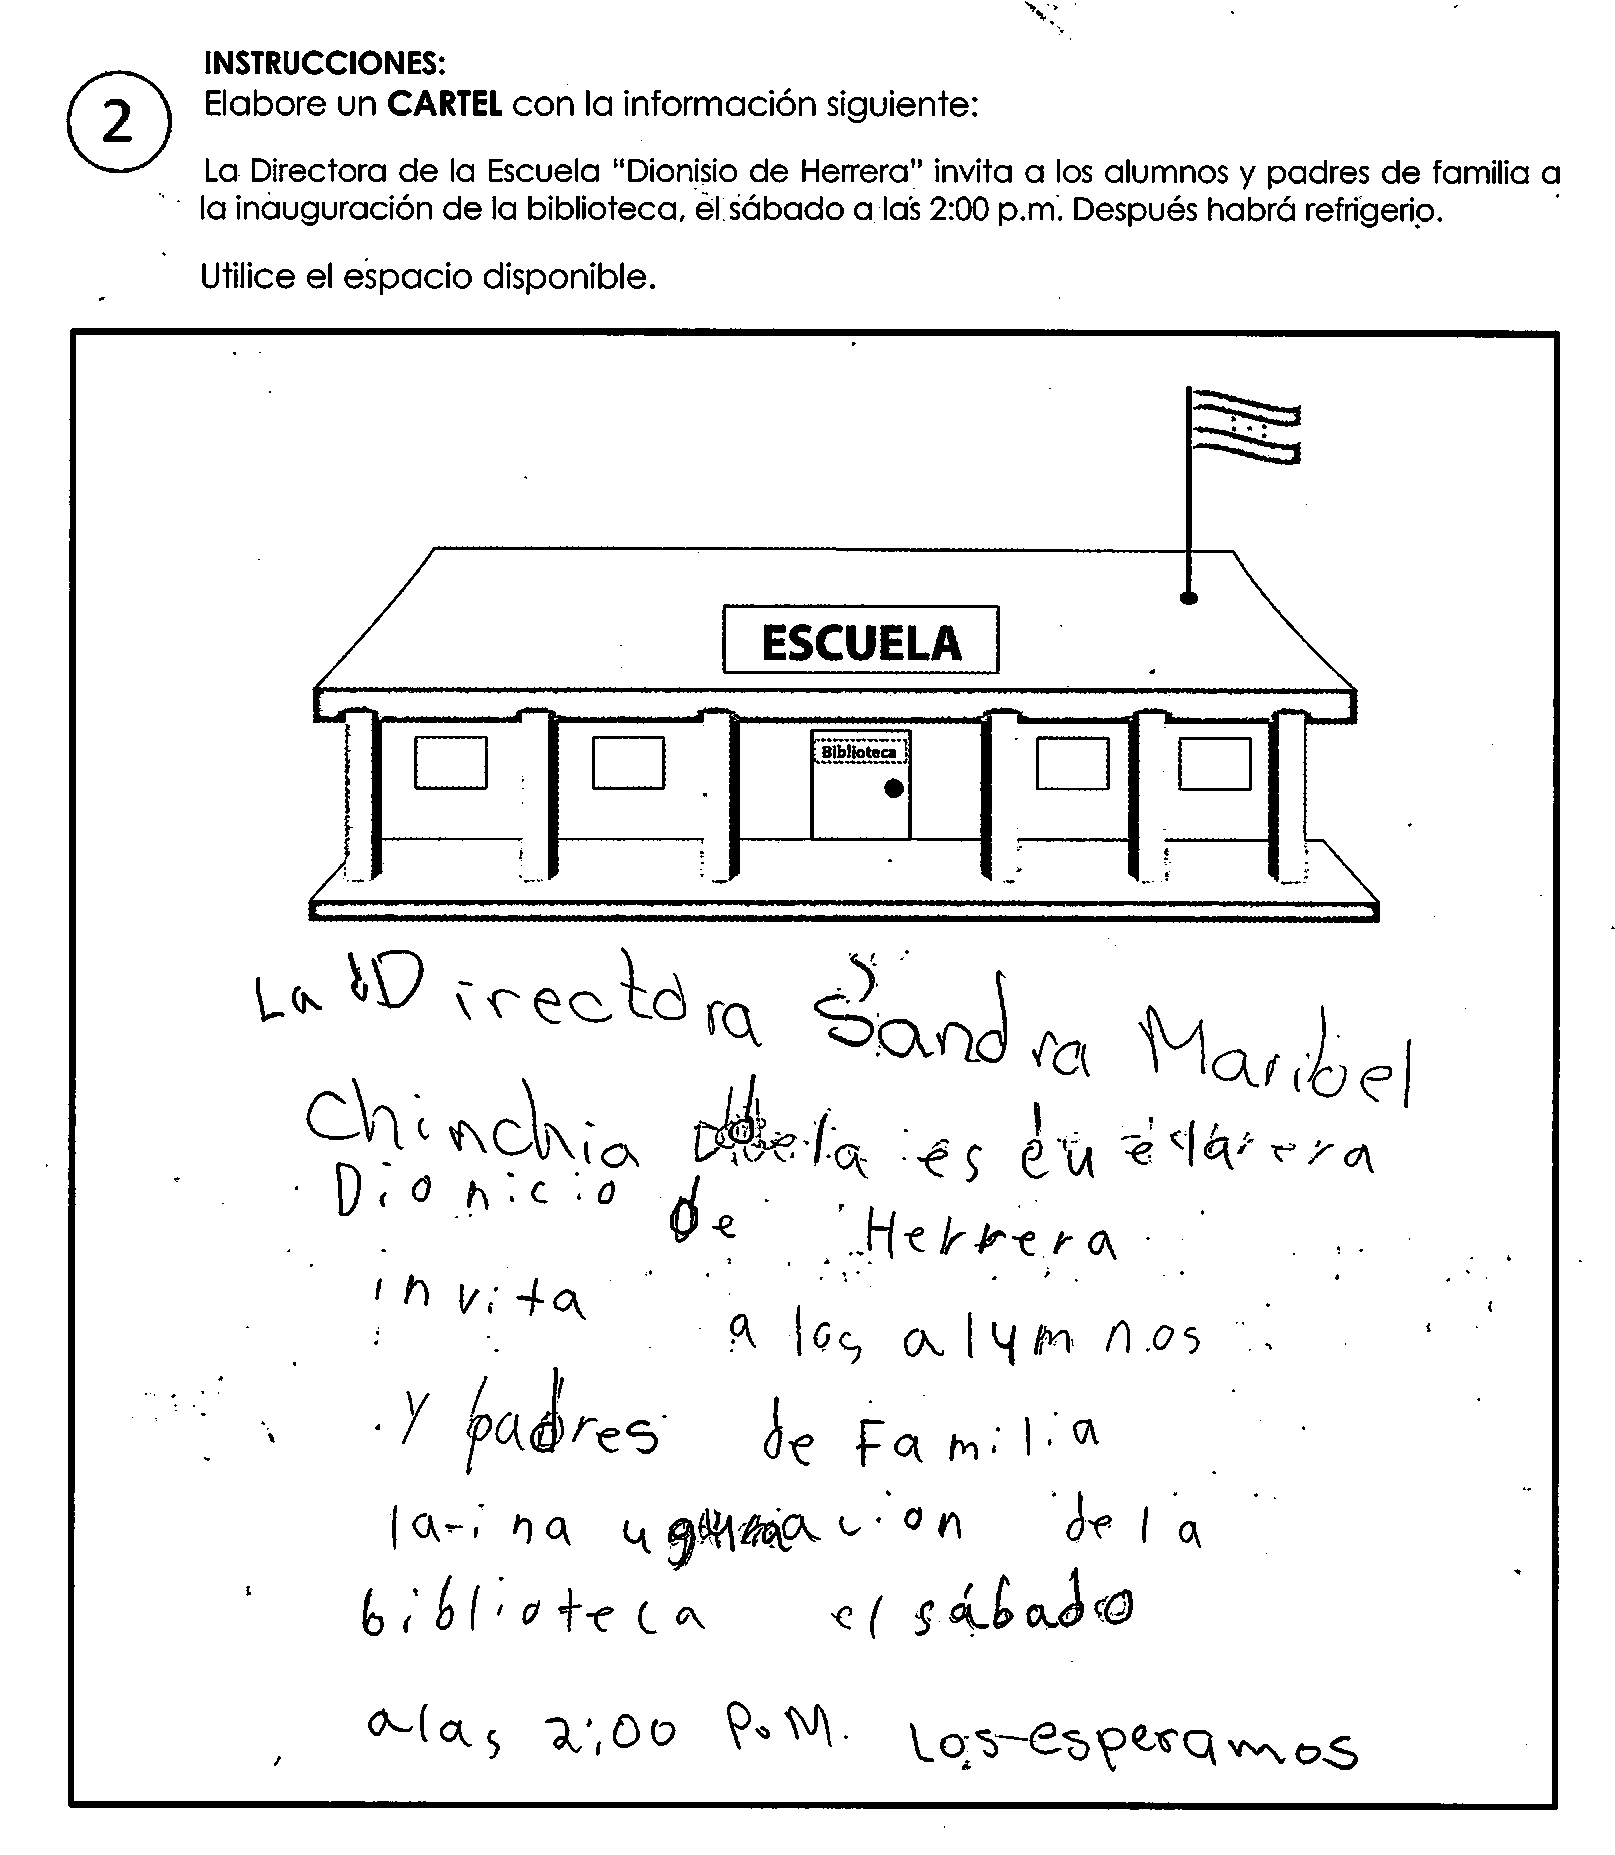 INSTRUCCIONES:
2
Elabore un CARTEL con la información siguiente:
La Directora de la Escuela "Dionisio de Herrera" invita a los alumnos y padres de familia a
la inauguración de la biblioteca, el sábado a las 2:00 p.m. Después habrá refrigerio.
Utilice el espacio disponible.
ESCUELA
Biblioteca
La Directora Sandra Maribel
Chinchia es
Dionicio de Herrera
invita a los alumnos
y padres de Familia
la-ina dela
biblioteca el sábado
alas 2:00 P.M. Los-esperamos